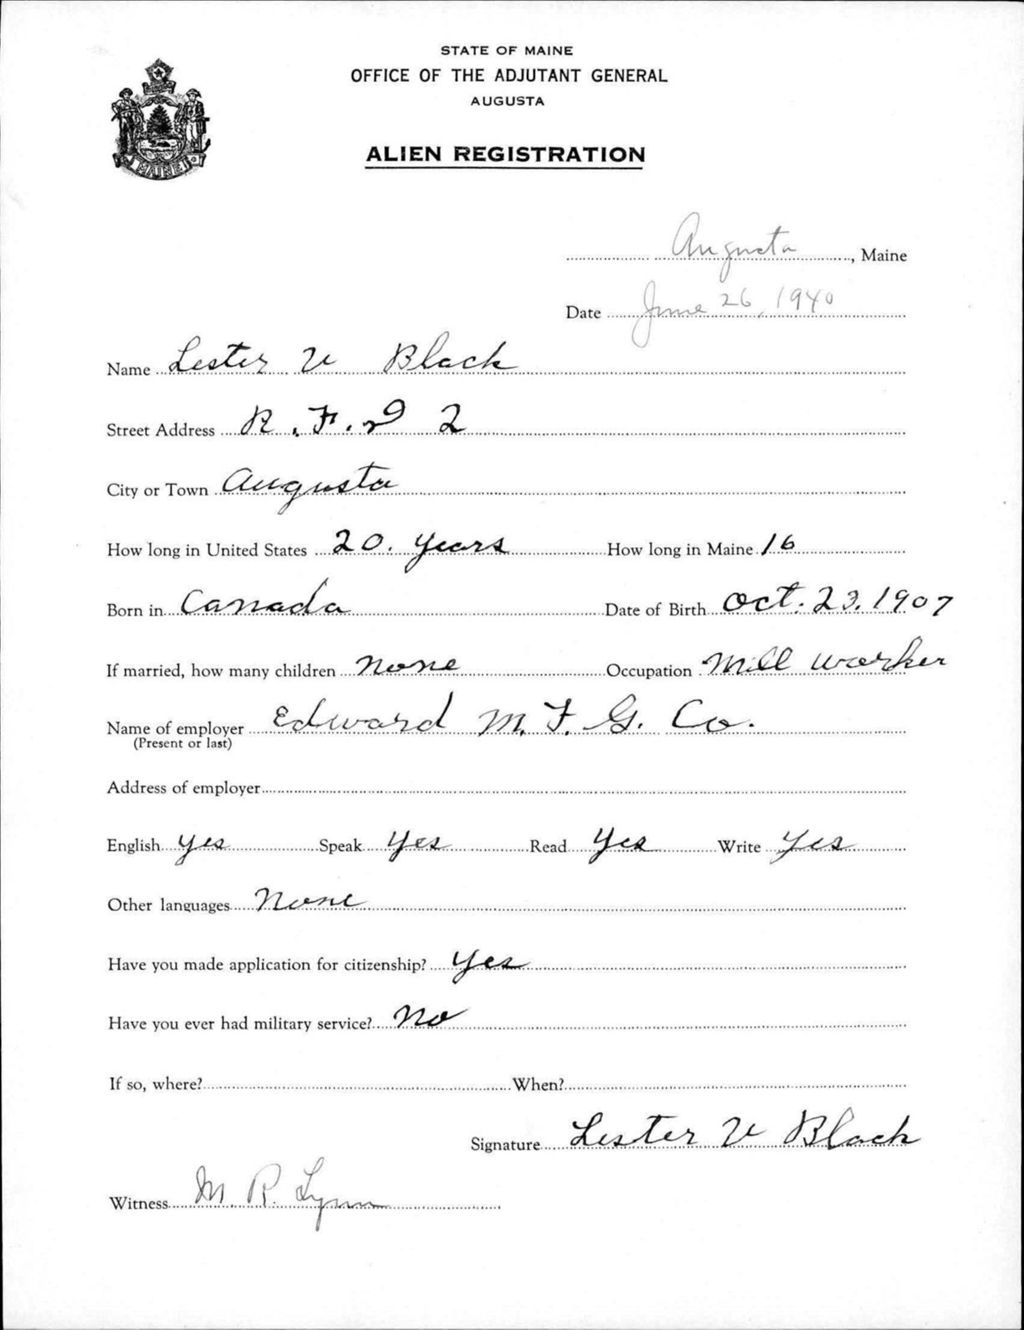 STATE OF MAINE
OFFICE OF THE ADJUTANT GENERAL
AUGUSTA
ALIEN REGISTRATION
MAINE
Augusta, Maine
Date June 26, 1940
Name Lester V Black
Street Address R.F.D 2
City or Town Augusta
How long in United States 20. years How long in Maine 16
Born in Canada Date of Birth Oct. 23, 1907
If married, how many children None Occupation Mill worker
Name of employer Edward M.F.G. Co.
(Present or last)
Address of employer
English yes Speak yes Read Yes Write Yes
Other languages None
Have you made application for citizenship? Yes
Have you ever had military service? No
If so, where? When?
Signature Lester V Black
Witness M. R. Lynn